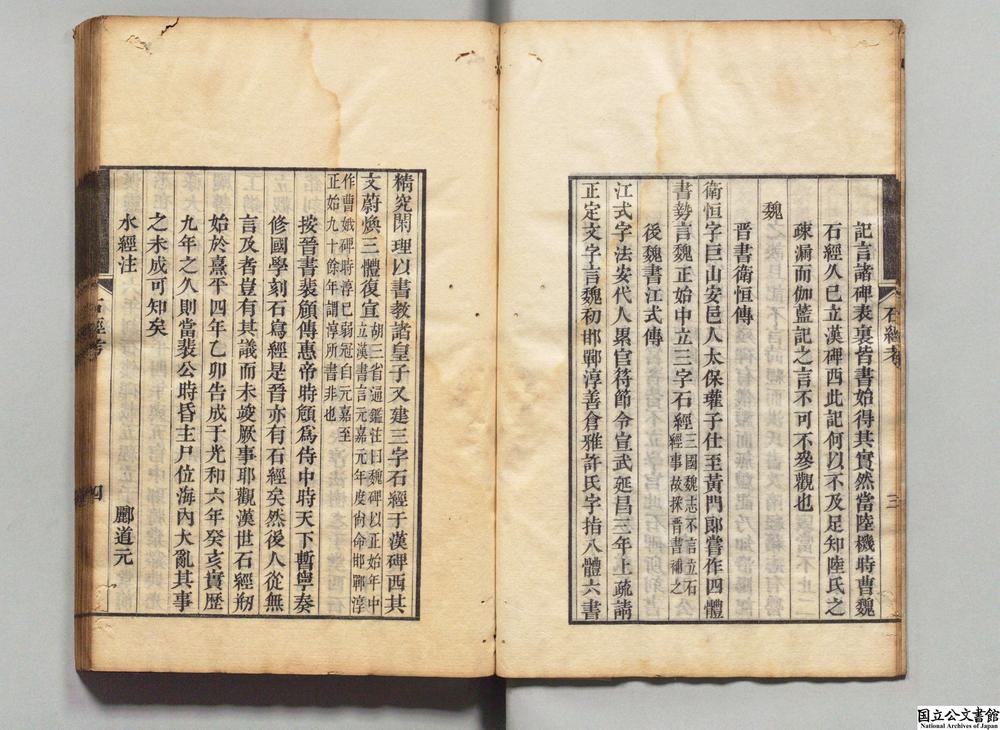 記言諸碑表裏皆書始得其實然當陸機時曹魏
石經久已立漢碑西此記何以不及足知陸氏之
疎漏而伽藍記之言不可不參觀也
魏
晉書衛恒傳
衛恒字巨山安邑人太保瓘子仕至黃門郞嘗作四體
書勢言魏正始中立三字石經三國魏志不言立石經事故採晉書補之
後魏書江式傳
江式字法安代人累官符節令宣武延昌三年上疏請
正定文字言魏初邯鄲淳善倉雅許氏字指八體六書
石經考
三
精究閑理以書教諸皇子又建三字石經于漢碑西其
文蔚煥三體復宣胡三省通鑑注曰魏碑以正始年中立漢書言元嘉元年度尙命邯鄲淳
作曹娥碑時淳已弱冠自元嘉至正始九十餘年謂淳所書非也
按晉書裴頠傳惠帝時頠爲侍中時天下暫寧奏
修國學刻石寫經是晉亦有石經矣然後人從無
言及者豈有其議而未竣厥事耶觀漢世石經剏
始於熹平四年乙卯告成于光和六年癸亥實歴
九年之久則當裴公時昏主尸位海內大亂其事
之未成可知矣
水經注
酈道元
石經考
四
国立公文書館
National Archives of Japan